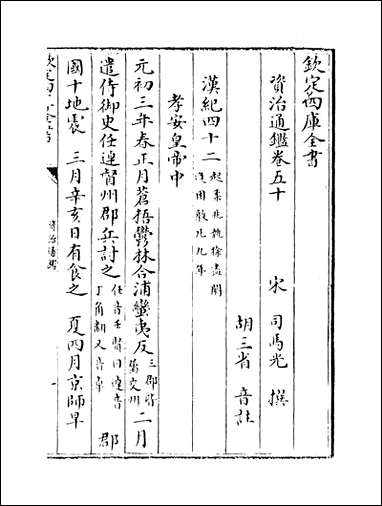 欽定四庫全書
資治通鑑卷五十 宋 司馬光 撰
胡三省 音註
漢紀四十二 起柔兆執徐盡閼逢困敦凡九年
孝安皇帝中
元初三年春正月蒼梧鬱林合浦蠻夷反 三郡皆屬交州 二月
遣侍御史任逴督州郡兵討之 任音壬賢曰逴音丁角翻又音卓 郡
國十地震 三月辛亥日有食之 夏四月京師旱
資治通鑑
一